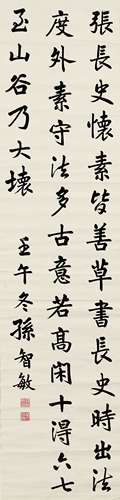 張長史懷素皆善草書長史時出法
度外素守法多古意若高閑十得六七
至山谷乃大壞
壬午冬孫智敏